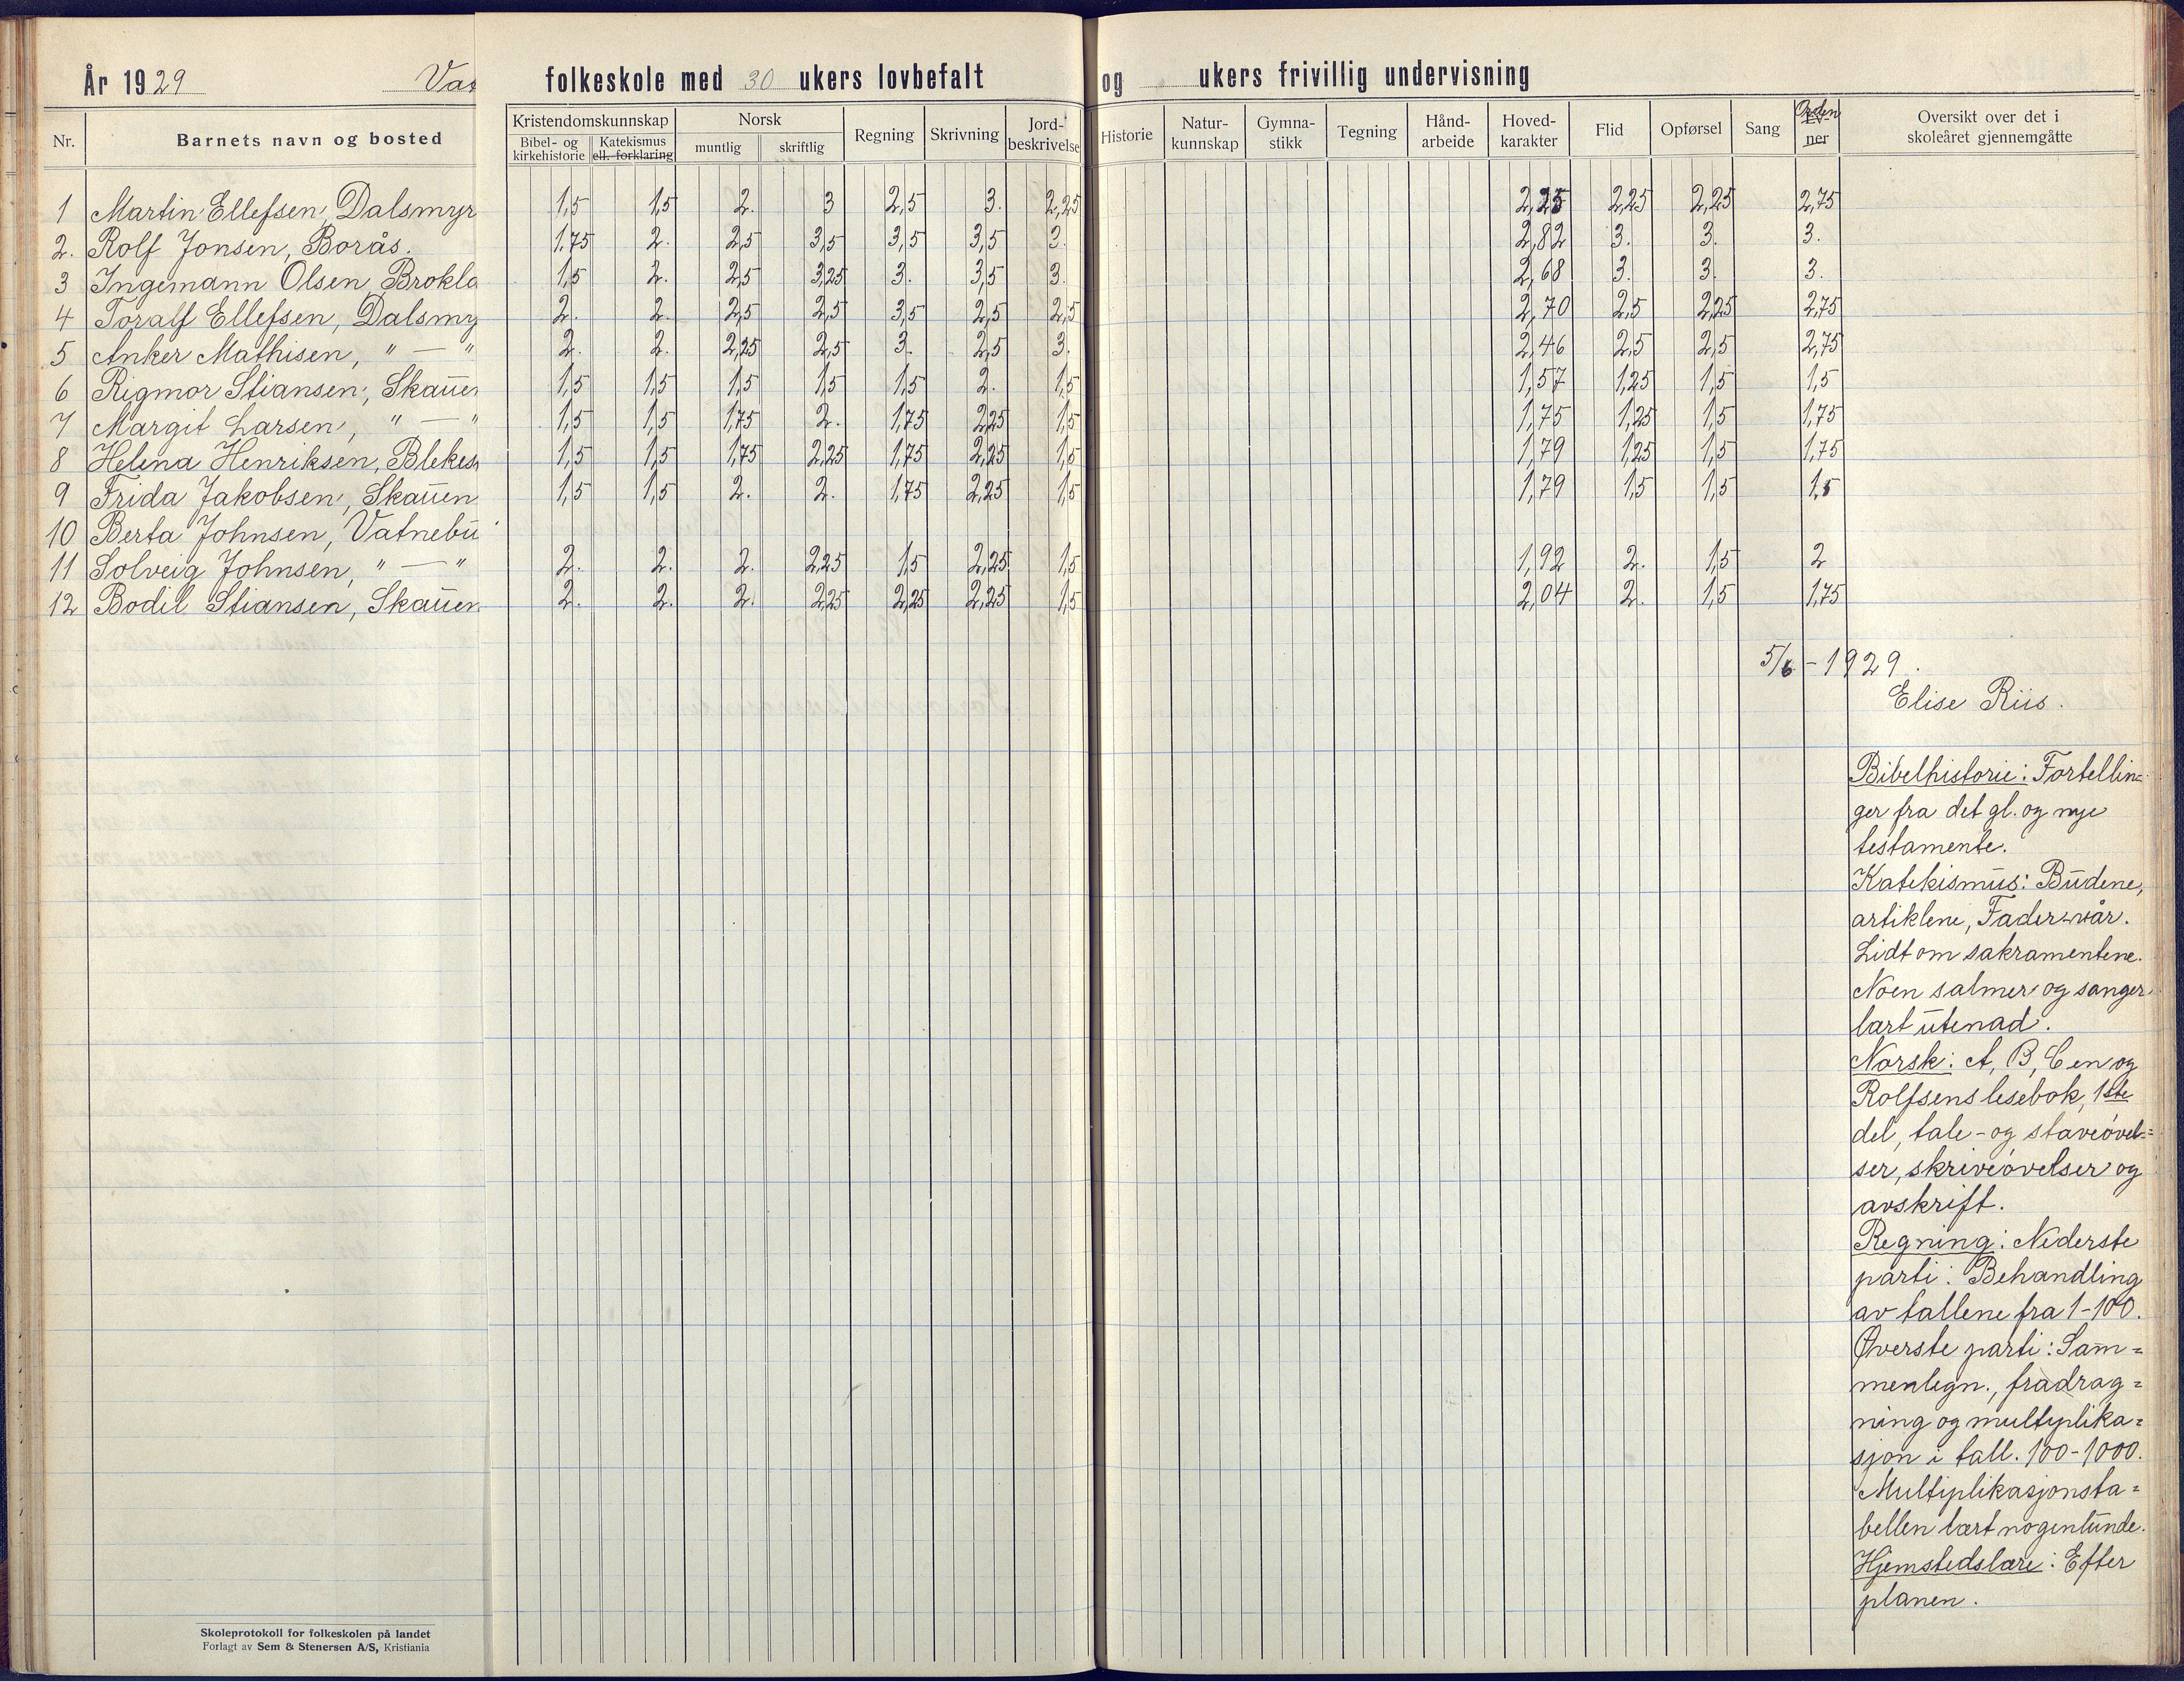 År 1929 folkeskole med 30 ukers lovbefalt og ukers frivillig undervisning
Nr. Barnets navn og bosted Kristendomskunnskap Bibel- og kirkehistorie Katekismus ell. forklaring Norsk muntlig skriftlig Regning Skrivning Jord-beskrivelse Historie Natur-kunnskap Gymna-stikk Tegning Hånd-arbeide Hoved-karakter Flid Opførsel Sang Orden Ev-ner Oversikt over det i skoleåret gjennemgåtte
1 Martin Ellefsen, Dalsmyr 1,5 1,5 2. 3 2,5 3. 2,25 2,25 2,25 2,25 2,75
2. Rolf Jonsen, Borås. 1,75 2. 2,5 3,5 3,5 3,5 3. 2,82 3. 3. 3.
3 Ingemann Olsen, Brokla 1,5 2. 2,5 3,25 3. 3,5 3. 2,68 3. 3. 3.
4 Toralf Ellefsen, Dalsmy 2. 2. 2,5 2,5 3,5 2,5 2,5 2,70 2,5 2,25 2,75
5 Anker Mathisen, " — " 2. 2. 2,25 2,5 3. 2,5 3. 2,46 2,5 2,5 2,75
6 Rigmor Stiansen, Skauen 1,5 1,5 1,5 1,5 1,5 2. 1,5 1,57 1,25 1,5 1,5
7 Margit Larsen, " — " 1,5 1,5 1,75 2. 1,75 2,25 1,5 1,75 1,25 1,5 1,75
8 Helena Henriksen, Blekes 1,5 1,5 1,75 2,25 1,75 2,25 1,5 1,79 1,25 1,5 1,75
9 Frida Jakobsen, Skauen 1,5 1,5 2. 2. 1,75 2,25 1,5 1,79 1,5 1,5 1,5
10 Berta Johnsen, Vatnebu
11 Solveig Johnsen, " — " 2. 2. 2. 2,25 1,5 2,25 1,5 1,92 2. 1,5 2
12 Bodil Stiansen, Skauen 2. 2. 2. 2,25 2,25 2,25 1,5 2,04 2. 1,5 1,75
5/6 - 1929.
Elise Riis.
Bibelhistorie: Fortellin=
ger fra det gl. og nye
testamente.
Katekismus: Budene,
artiklene, Fader vår.
Lidt om sakramentene.
Noen salmer og sanger
lært utenad.
Norsk: A, B, C en og
Rolfsens lesebok, 1ste
del, tale- og staveøvel=
ser, skriveøvelser og
avskrift.
Regning: Nederste
parti: Behandling
av tallene fra 1-100.
Øverste parti: Sam=
menlegn., fradrag=
ning og multiplika=
sjon i tall. 100-1000.
Multiplikasjonsta=
bellen lært nogenlunde.
Hjemstedslære: Efter
planen.
Skoleprotokoll for folkeskolen på landet
Forlagt av Sem & Stenersen A/S, Kristiania